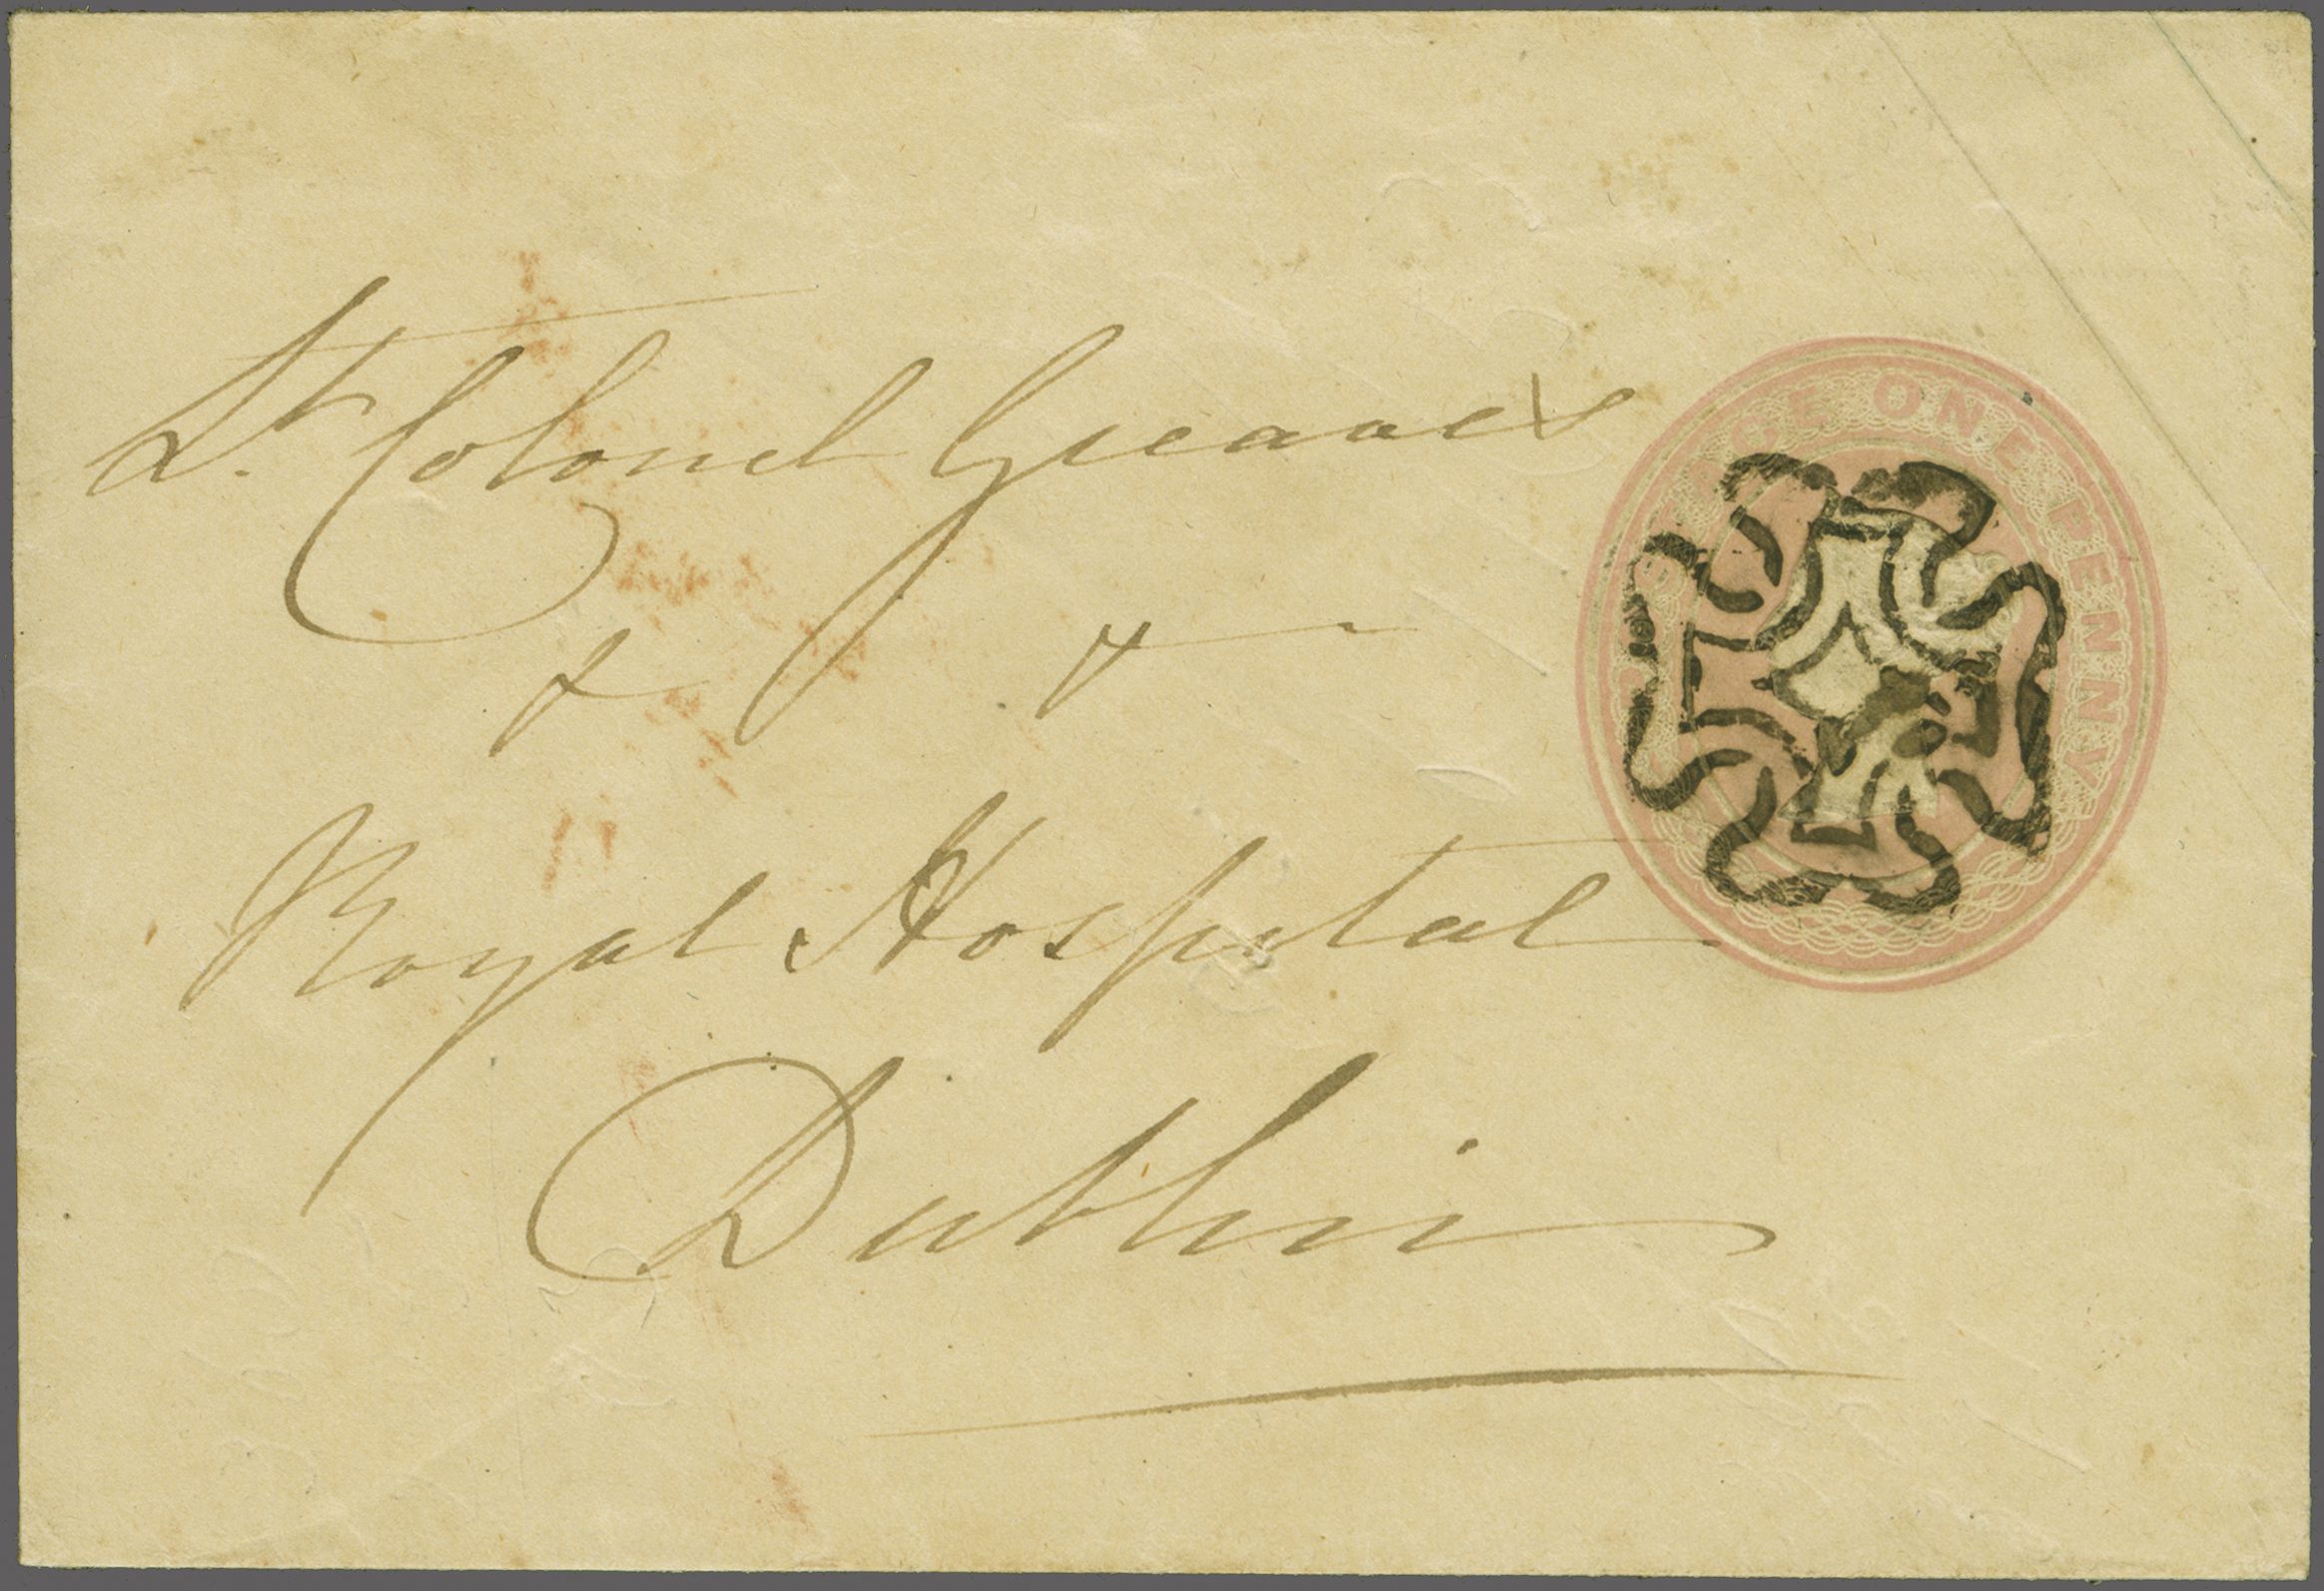 Lt. Colonel Greaves
& &
Royal Hospital
Dublin
POSTAGE ONE PENNY